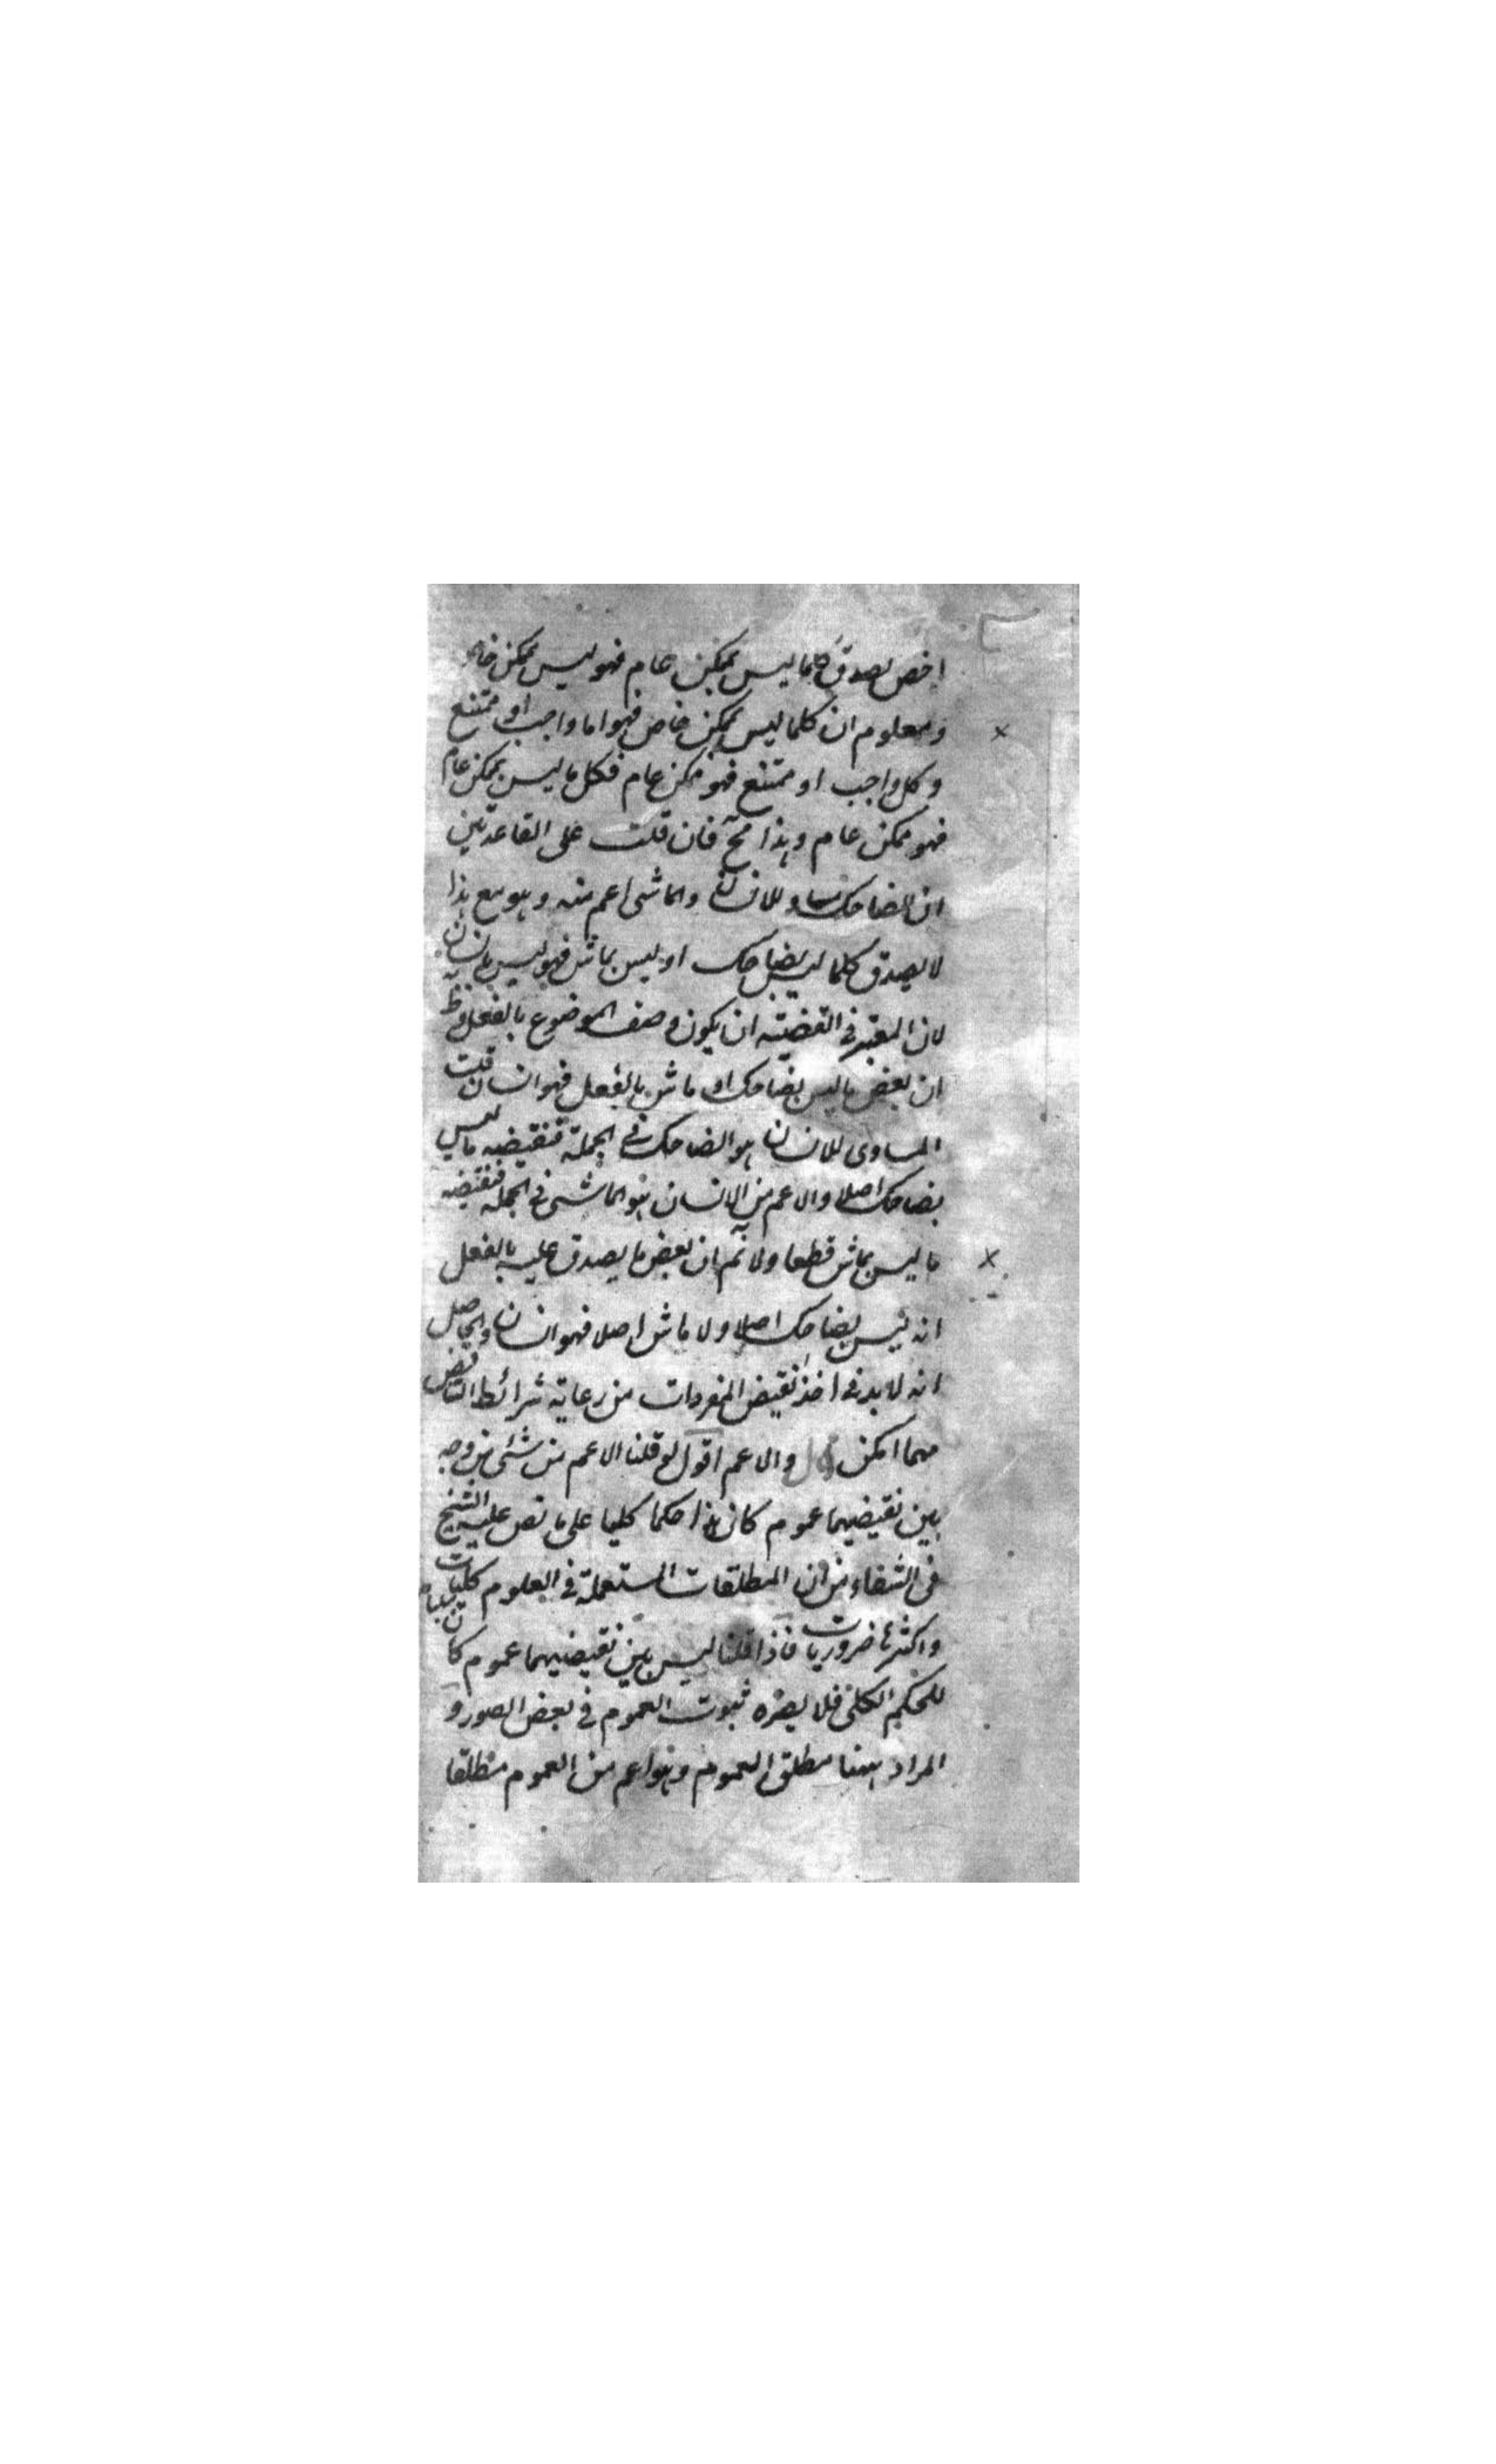 اخص لصدق كلما ليس بممكن عام فهو ليس بممكن خاص
ومعلوم ان كلما ليس بممكن خاص فهو اما واجب او ممتنع
وكل واجب او ممتنع فهو ممكن عام فكل ما ليس بممكن عام
فهو ممكن عام وهذا مح فان قلت على القاعدتين
ان الضاحك مساو للانسان والماشى اعم منه وهو مع هذا
لا يصدق كلما ليس بضاحك او ليس بماش فهو ليس بانسان
لان المعتبر فى القضية ان يكون وصف الموضوع بالفعل وظ
ان بعض ما ليس بضاحك او ماش بالفعل فهو انسان قلت
المساوى للانسان هو الضاحك فى الجملة فنقيضه ما ليس
بضاحك اصلا والاعم من الانسان هو الماشى فى الجملة فنقيضه
ما ليس بماش قطعا ولا نم ان بعض ما يصدق عليه بالفعل
انه ليس بضاحك اصلا ولا ماش اصلا فهو انسان والحاصل
انه لا بد فى اخذ نقيض المفردات من رعاية شرائط التناقض
مهما امكن قال والاعم اقول لو قلنا الاعم من شئ من وجه
بين نقيضيهما عموم كان هذا حكما كليا على ما نص عليه الشيخ
فى الشفاء من ان المطلقات المستعملة فى العلوم كليات
واكثرها ضروريات فاذا قلنا ليس بين نقيضيهما عموم كان
للحكم الكلى فلا يضره ثبوت العموم فى بعض الصور و
المراد ههنا مطلق العموم وهو اعم من العموم مطلقا